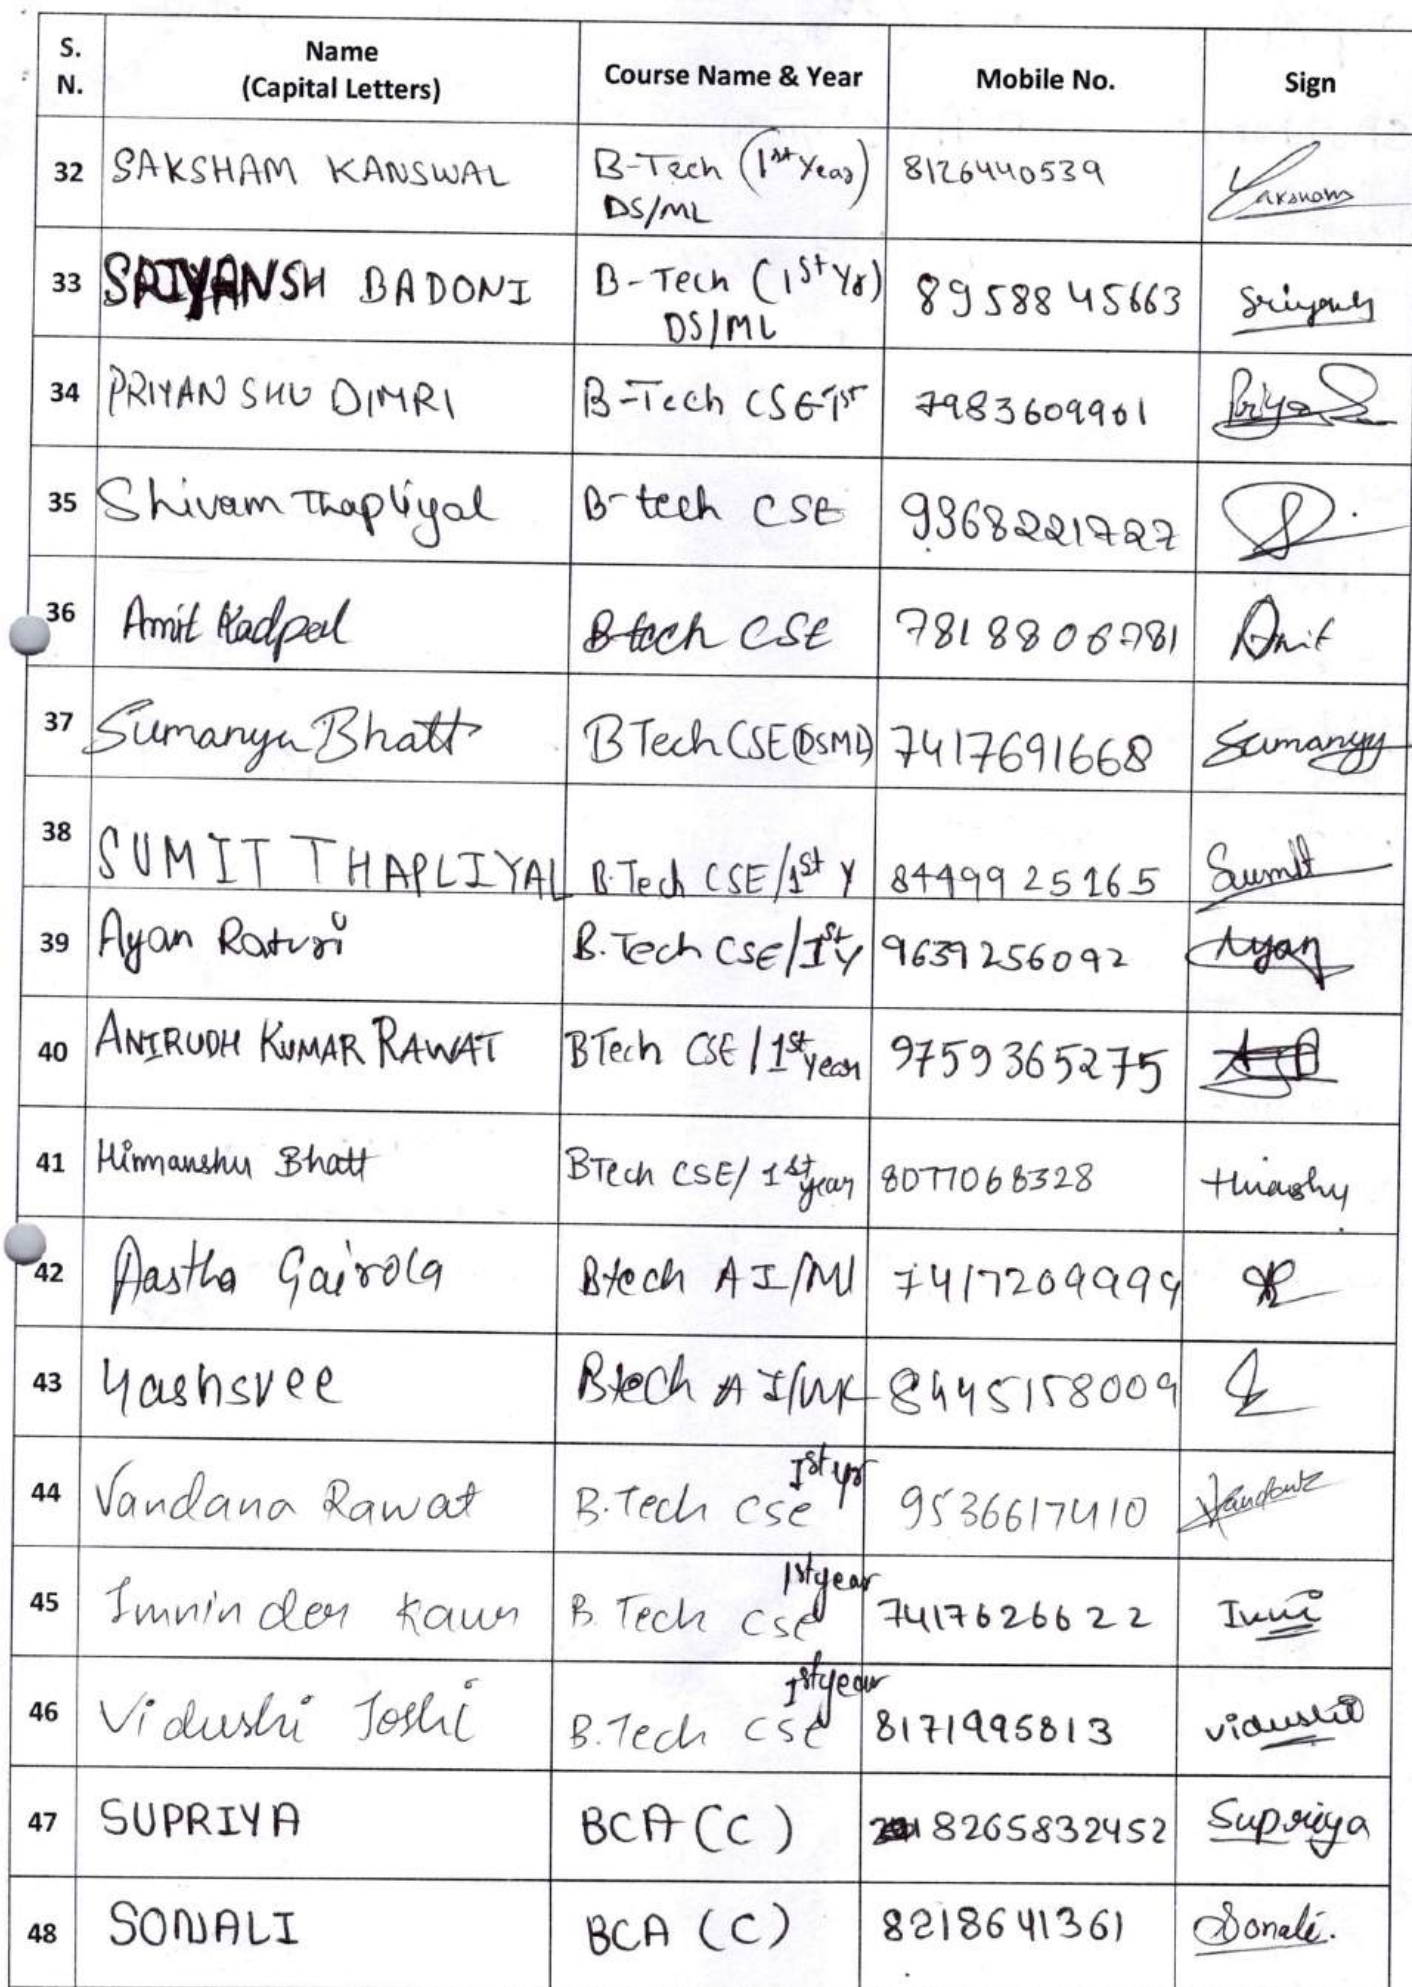 S.
N.
Name
(Capital Letters)
Course Name & Year
Mobile No.
Sign
32 SAKSHAM KANSWAL B-Tech (1st Year) 8126440539
DS/ML
33 SRIYANSH BADONI B-Tech (1st Yr) 8958845663 Sriyansh
DS/ML
34 PRIYANSHU DIMRI B-Tech CSE 1st 7983609901
35 Shivam Thapliyal B-tech CSE 9368221727
36 Amit Kadpal B tech CSE 7818806781 Amit
37 Sumanyu Bhatt B Tech CSE (DSML) 7417691668
38 SUMIT THAPLIYAL B.Tech CSE/1st Y 8449925165 Sumit
39 Ayan Raturi B.Tech CSE/Ist Y 9639256092 Ayan
40 ANIRUDH KUMAR RAWAT BTech CSE/1st year 9759365275
41 Himanshu Bhatt BTech CSE/1st year 8077068328
42 Aastha Gairola Btech AI/Ml 7417209999
43 Yashsvee Btech AI/ 8445158009
44 Vandana Rawat B.Tech Cse Ist yr 9536617410
45 Imninder Kaur B.Tech Cse 1st year 7417626622
46 Vidushi Joshi B.Tech Cse 1st year 8171995813 Vidushi
47 SUPRIYA BCA (C) 8265832452 Supriya
48 SONALI BCA (C) 8218641361 Sonali.